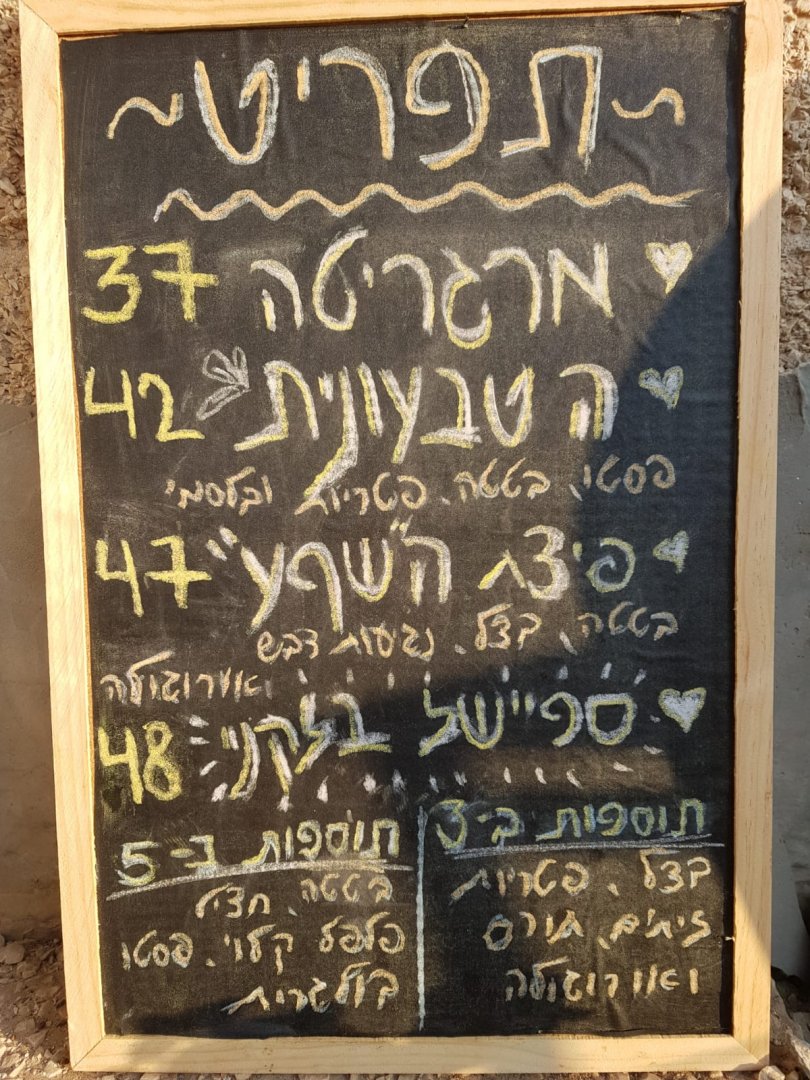 ~ תפריט ~
מרגריטה 37
ה טבעונית 42
פסטו, בטטה, פטריות ובלסמי
פיצת ה"שףע" 47
בטטה, בצל, גבעות דבש
ואורוגולה
ספיישל בלקני 48
תוספות ב-3
בצל, פטריות
זיתים, תורס
ואורוגולה
תוספות ב-5
בטטה, חציל
פלפל קלוי, פסטו
בולגרית